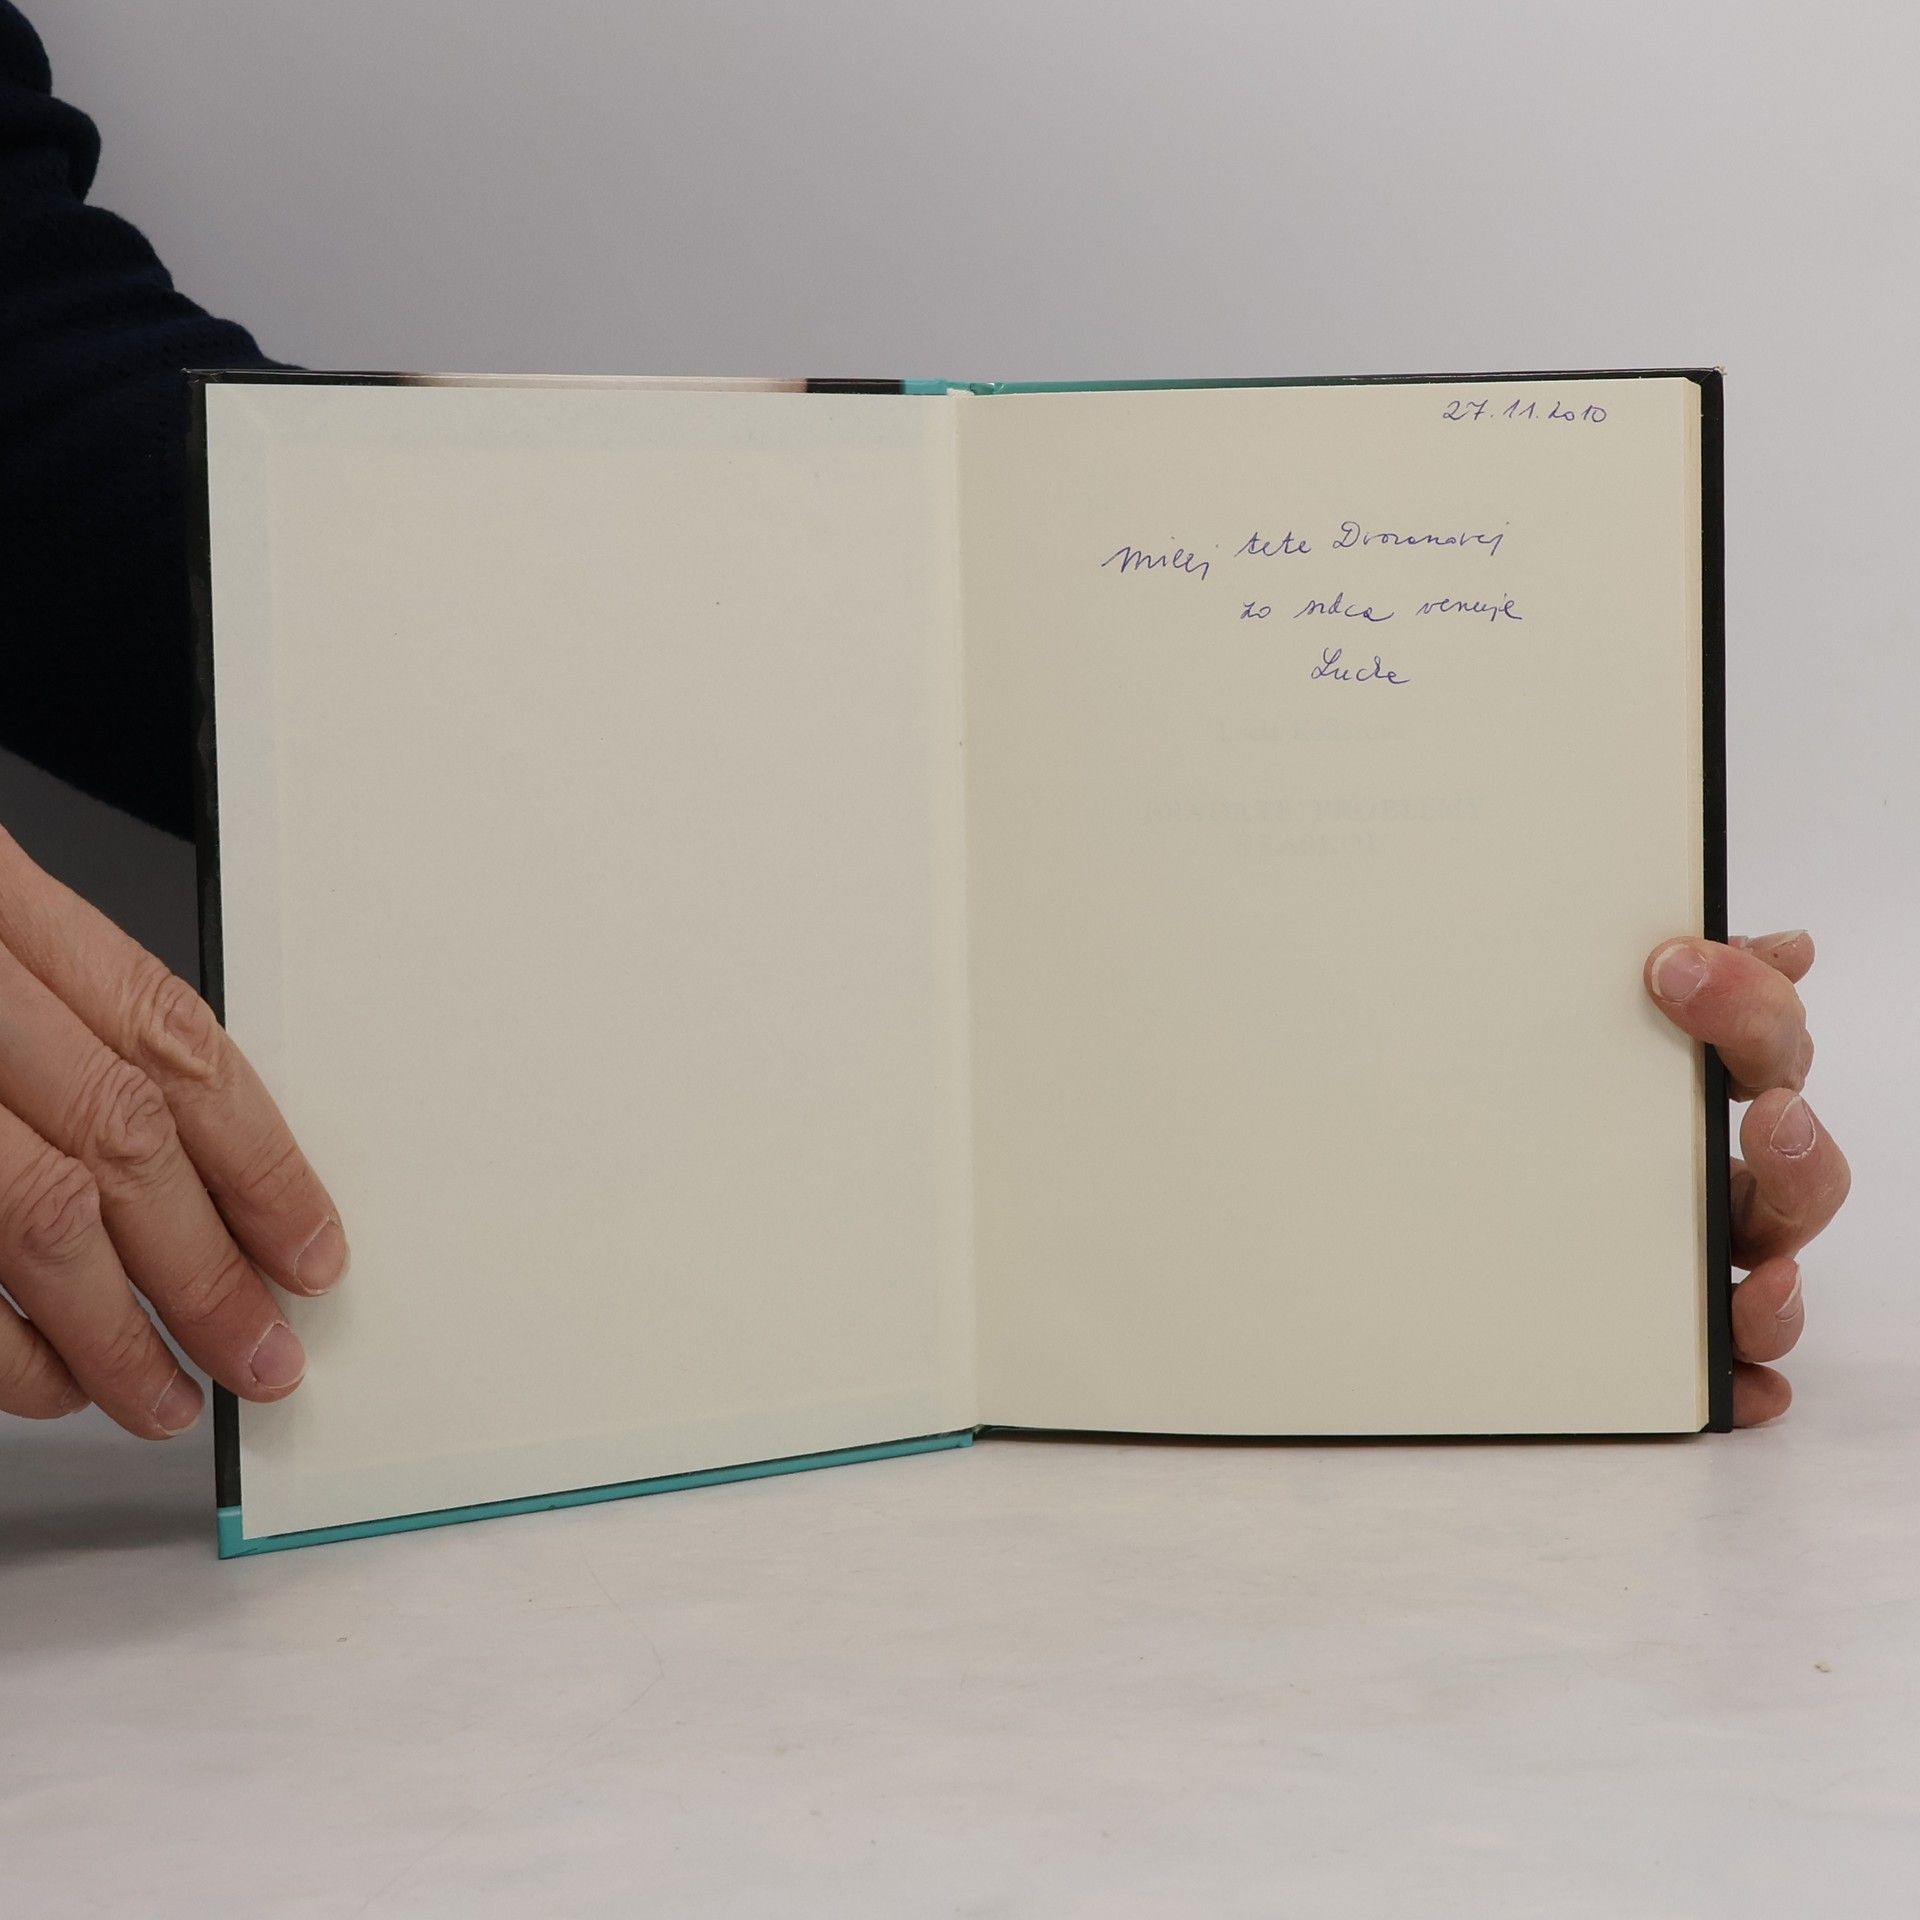 27.11.2010
Milej tete Dvoranovej
zo srdca venuje
Lucia
PROBLEMY